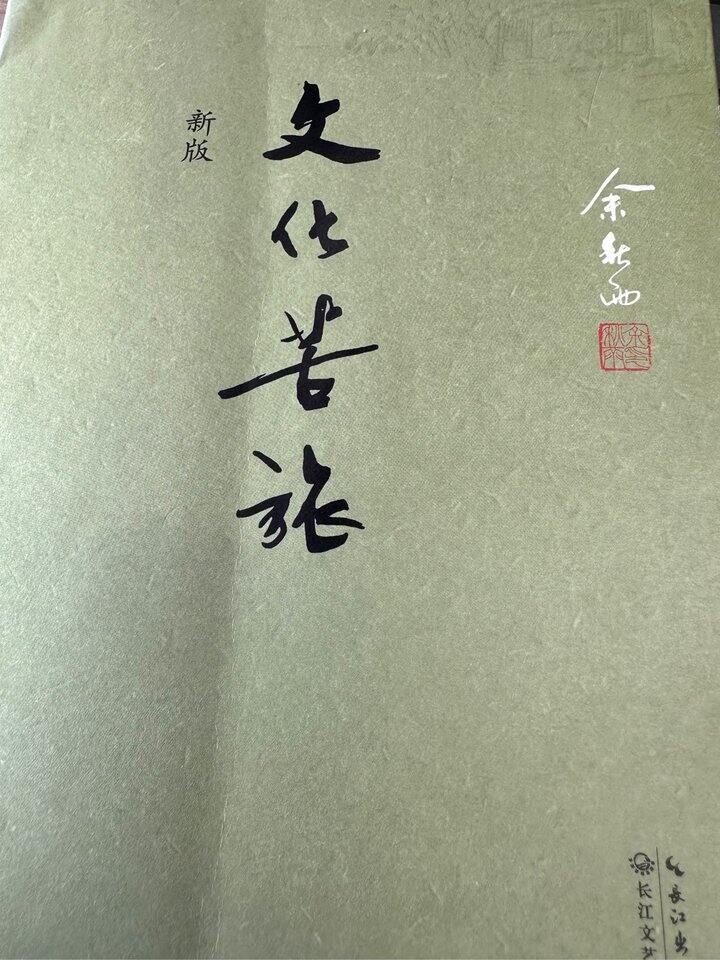 余秋雨
余秋雨印
文化苦旅
新版
长江出
长江文艺